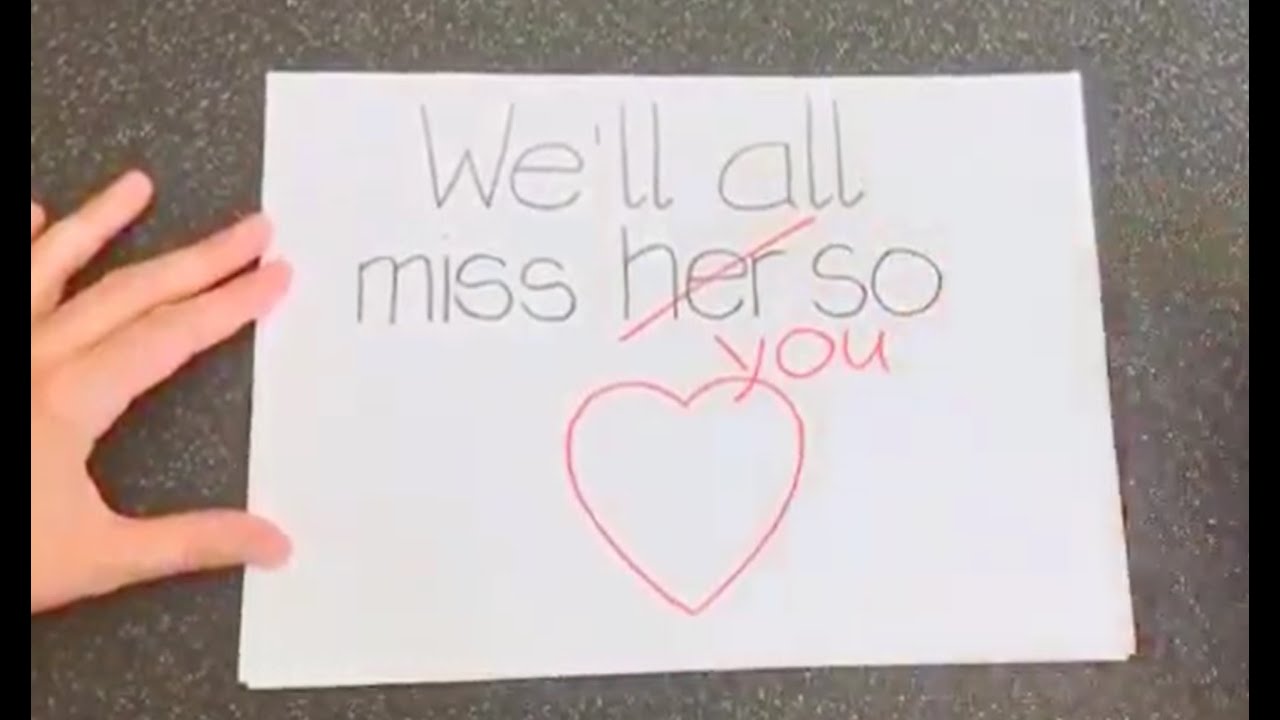 We'll all
miss her so
you